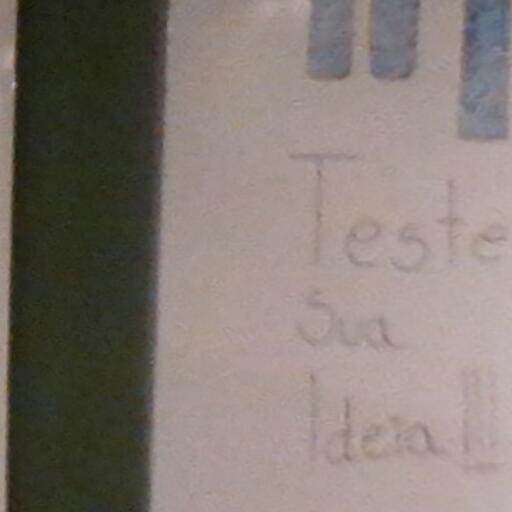 Teste
Sua
Ideia!!!